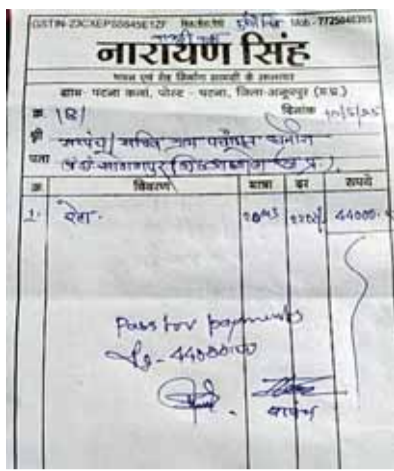 GSTIN-23CXEPS5645E1ZF Mob.-7725840395
नारायण सिंह
भवन एवं रोड निर्माण सामग्री के सप्लायर
ग्राम- पटना कला, पोस्ट - पटना, जिला-अनूपपुर (म.प्र.)
क्र. 18/ दिनांक 10/5/25
श्री सरपंच/सचिव ग्राम पंचायत
पता
क्र. विवरण मात्रा दर रूपये
1- रेता- 20 M3 2200/ 44000-
Pass for payments
Rs- 44000=00
सरपंच